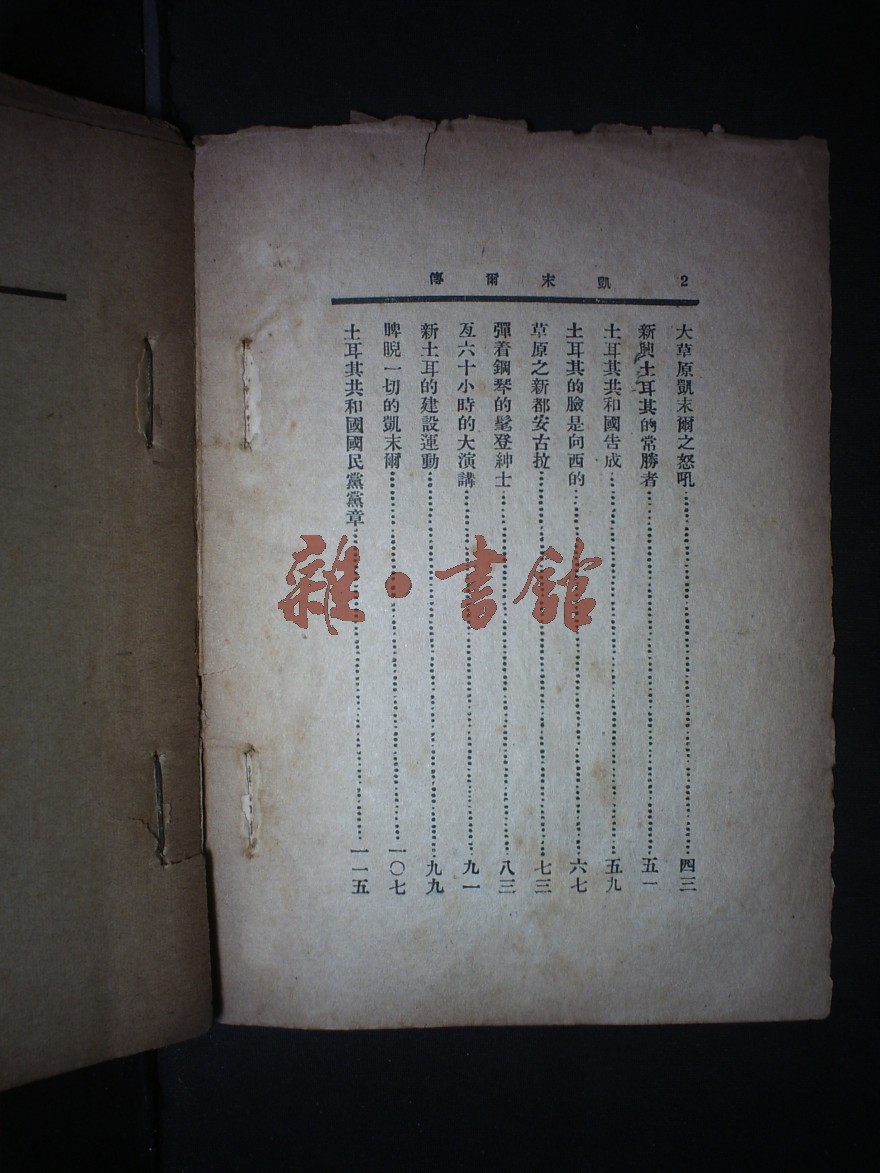 2 凱末爾傳
大草原凱末爾之怒吼……四三
新興土耳其的常勝者……五一
土耳其共和國告成……五九
土耳其的臉是向西的……六七
草原之新都安古拉……七三
彈着鋼琴的髦登紳士……八三
亙六十小時的大演講……九一
新土耳的建設運動……九九
睥睨一切的凱末爾……一〇七
土耳其共和國國民黨黨章……一一五
雜·書館